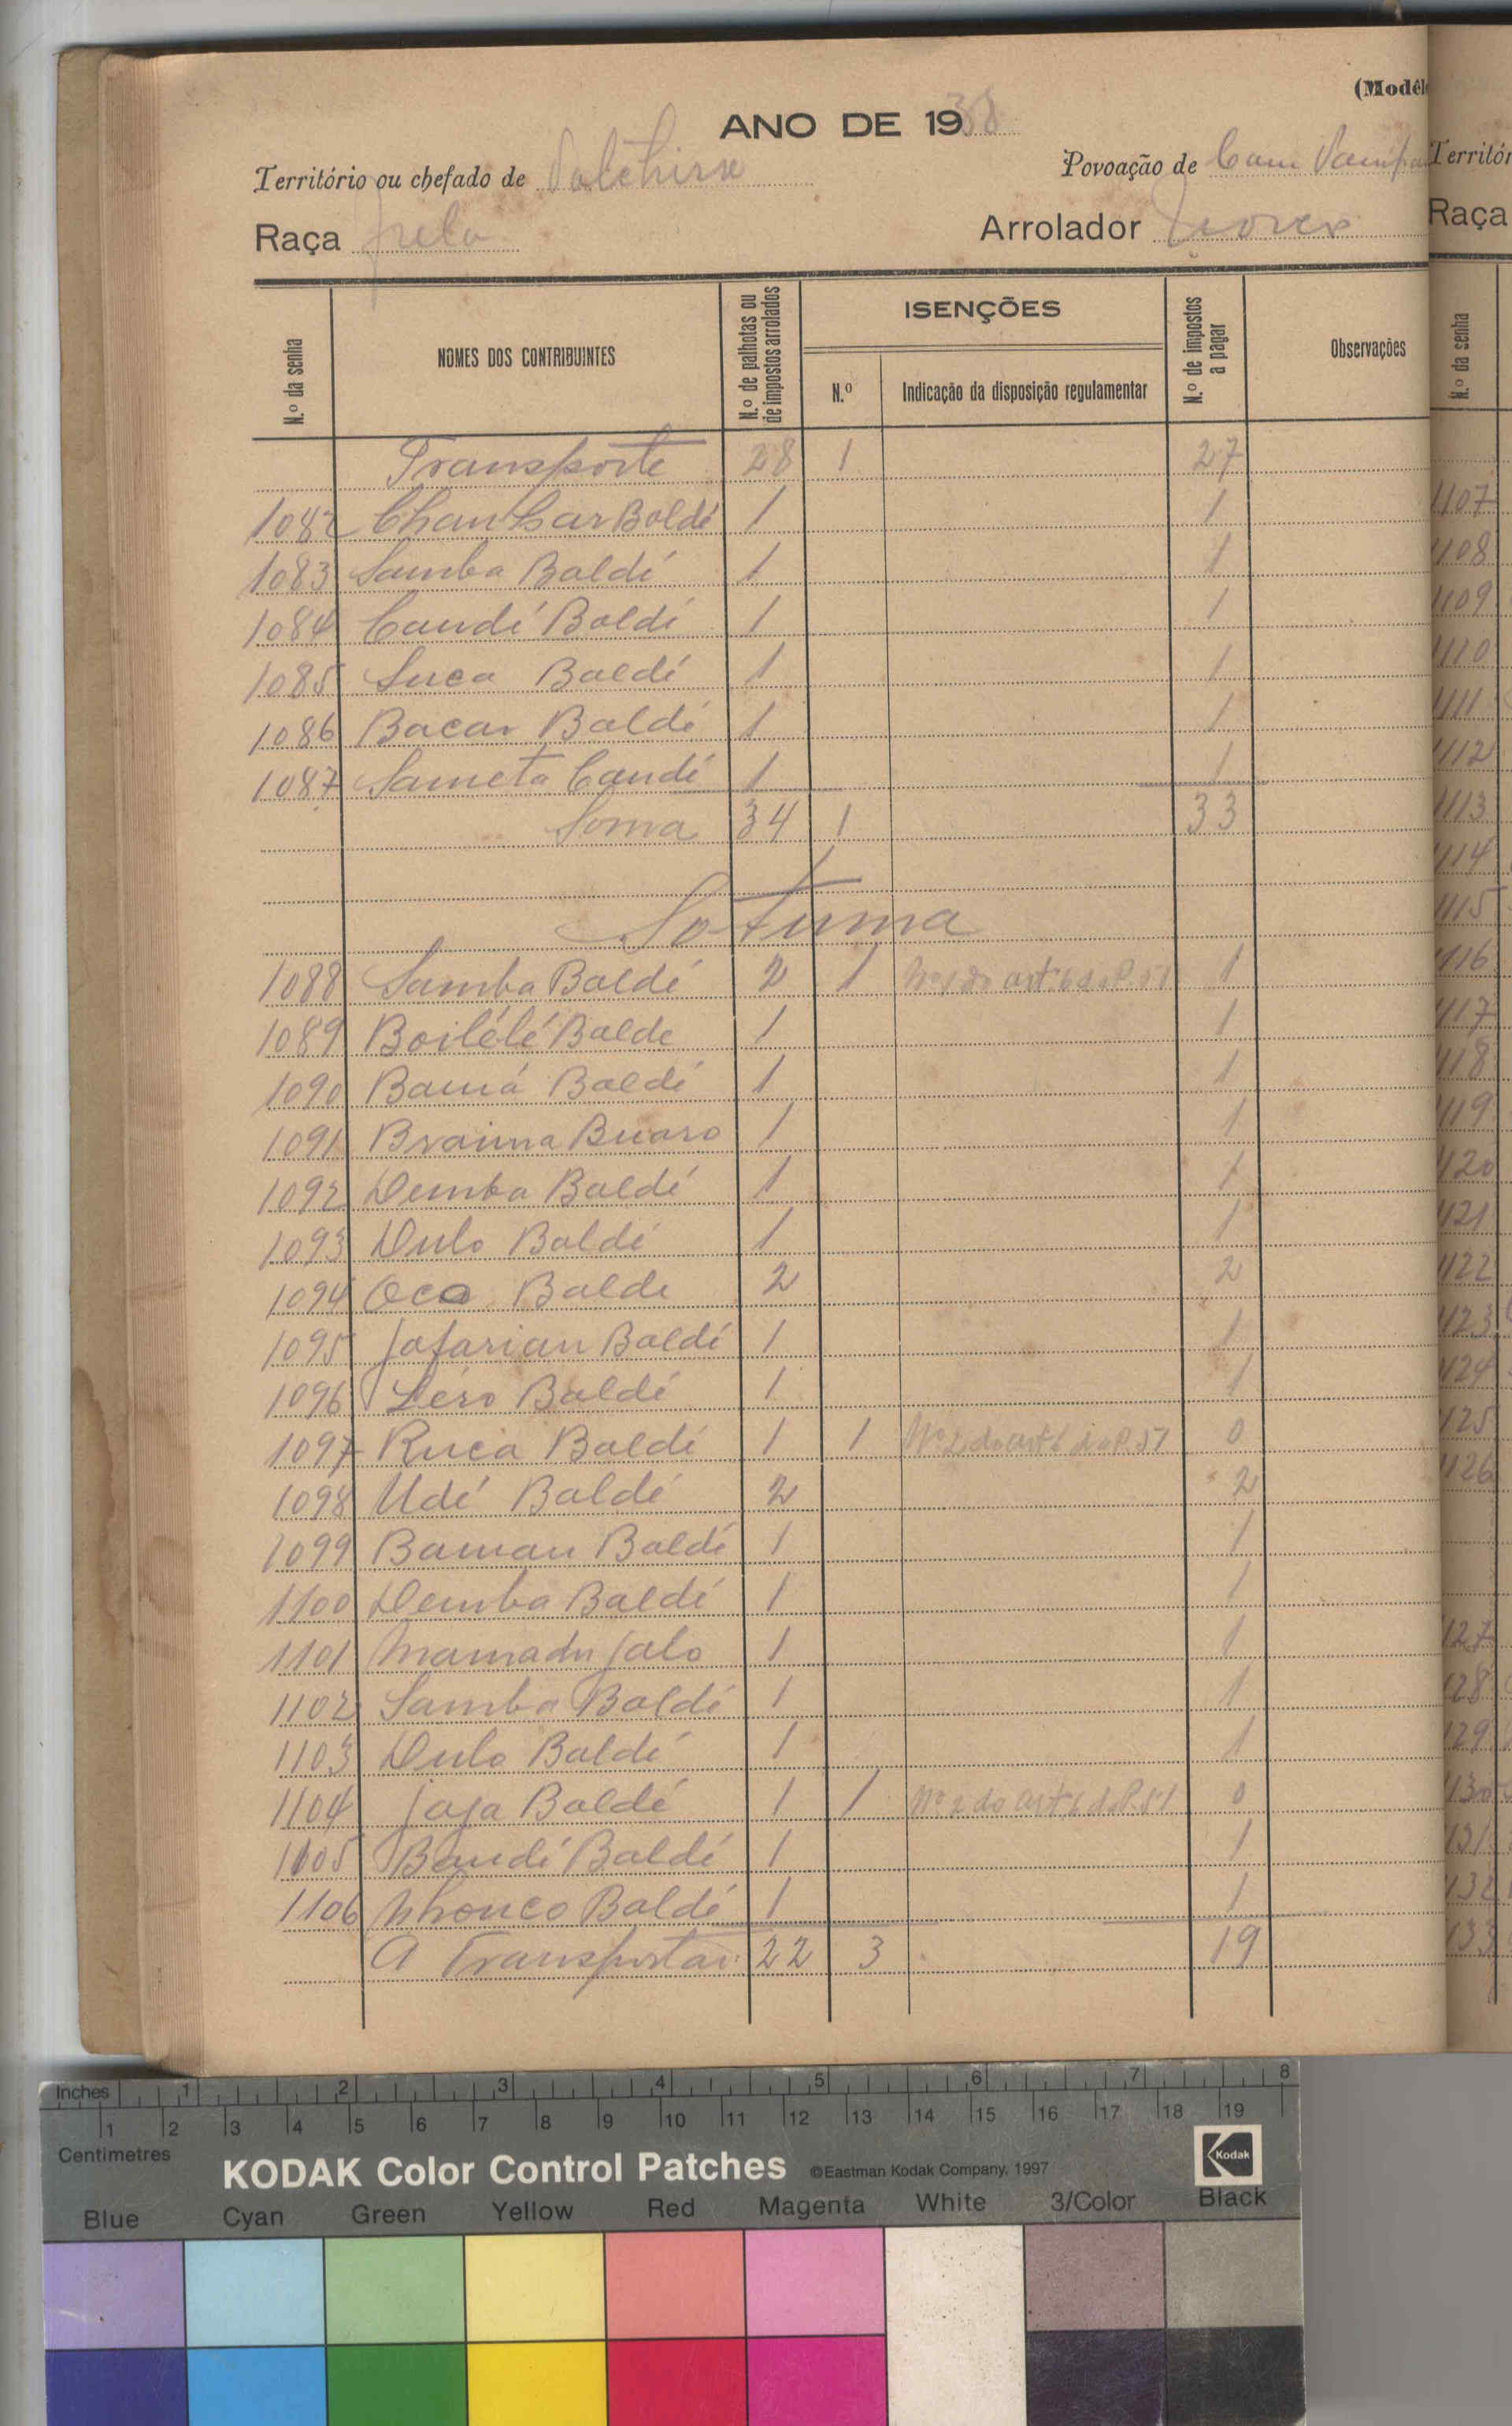 (Modêl
ANO DE 1938
Território ou chefado de
Povoação de Cam
Raça
Arrolador
N.º da senha
NOMES DOS CONTRIBUINTES
N.º de palhotas ou de impostos arrolados
ISENÇÕES
N.º
Indicação da disposição regulamentar
N.º de impostos a pagar
Observações
Transporte 28 1 27
1082 Baldé 1 1
1083 Samba Baldé 1 1
1084 Candé Baldé 1 1
1085 Suca Baldé 1 1
1086 Bacar Baldé 1 1
1087 Sameta Candé 1 1
Soma 34 1 33
Sotuma
1088 Samba Baldé 2 1 Nº 1 do artº 6 do R. 51 1
1089 Boilélé Balde 1 1
1090 Bamá Baldé 1 1
1091 Braima Buaro 1 1
1092 Demba Baldé 1 1
1093 Dulo Baldé 1 1
1094 Oco Balde 2 2
1095 Jafarian Baldé 1 1
1096 Léro Baldé 1 1
1097 Ruca Baldé 1 1 Nº 2 do artº 6 do R. 51 0
1098 Udé Baldé 2 2
1099 Baman Baldé 1 1
1100 Demba Baldé 1 1
1101 Mamadu Jalo 1 1
1102 Samba Baldé 1 1
1103 Dulo Baldé 1 1
1104 Jaja Baldé 1 1 Nº 2 do artº 6 do R. 51 0
1105 Bandé Baldé 1 1
1106 Nhonco Baldé 1 1
A Transportar 22 3 19
Territór
Raça
N.º da senha
1107
1108
1109
1110
1111
1112
1113
1114
1115
1116
1117
1118
1119
1120
1121
1122
1123
1124
1125
1126
1127
1128
1129
1130
1131
1132
1133
Inches 1 2 3 4 5 6 7 8
1 2 3 4 5 6 7 8 9 10 11 12 13 14 15 16 17 18 19
Centimetres
KODAK Color Control Patches ©Eastman Kodak Company, 1997 Kodak
Blue Cyan Green Yellow Red Magenta White 3/Color Black